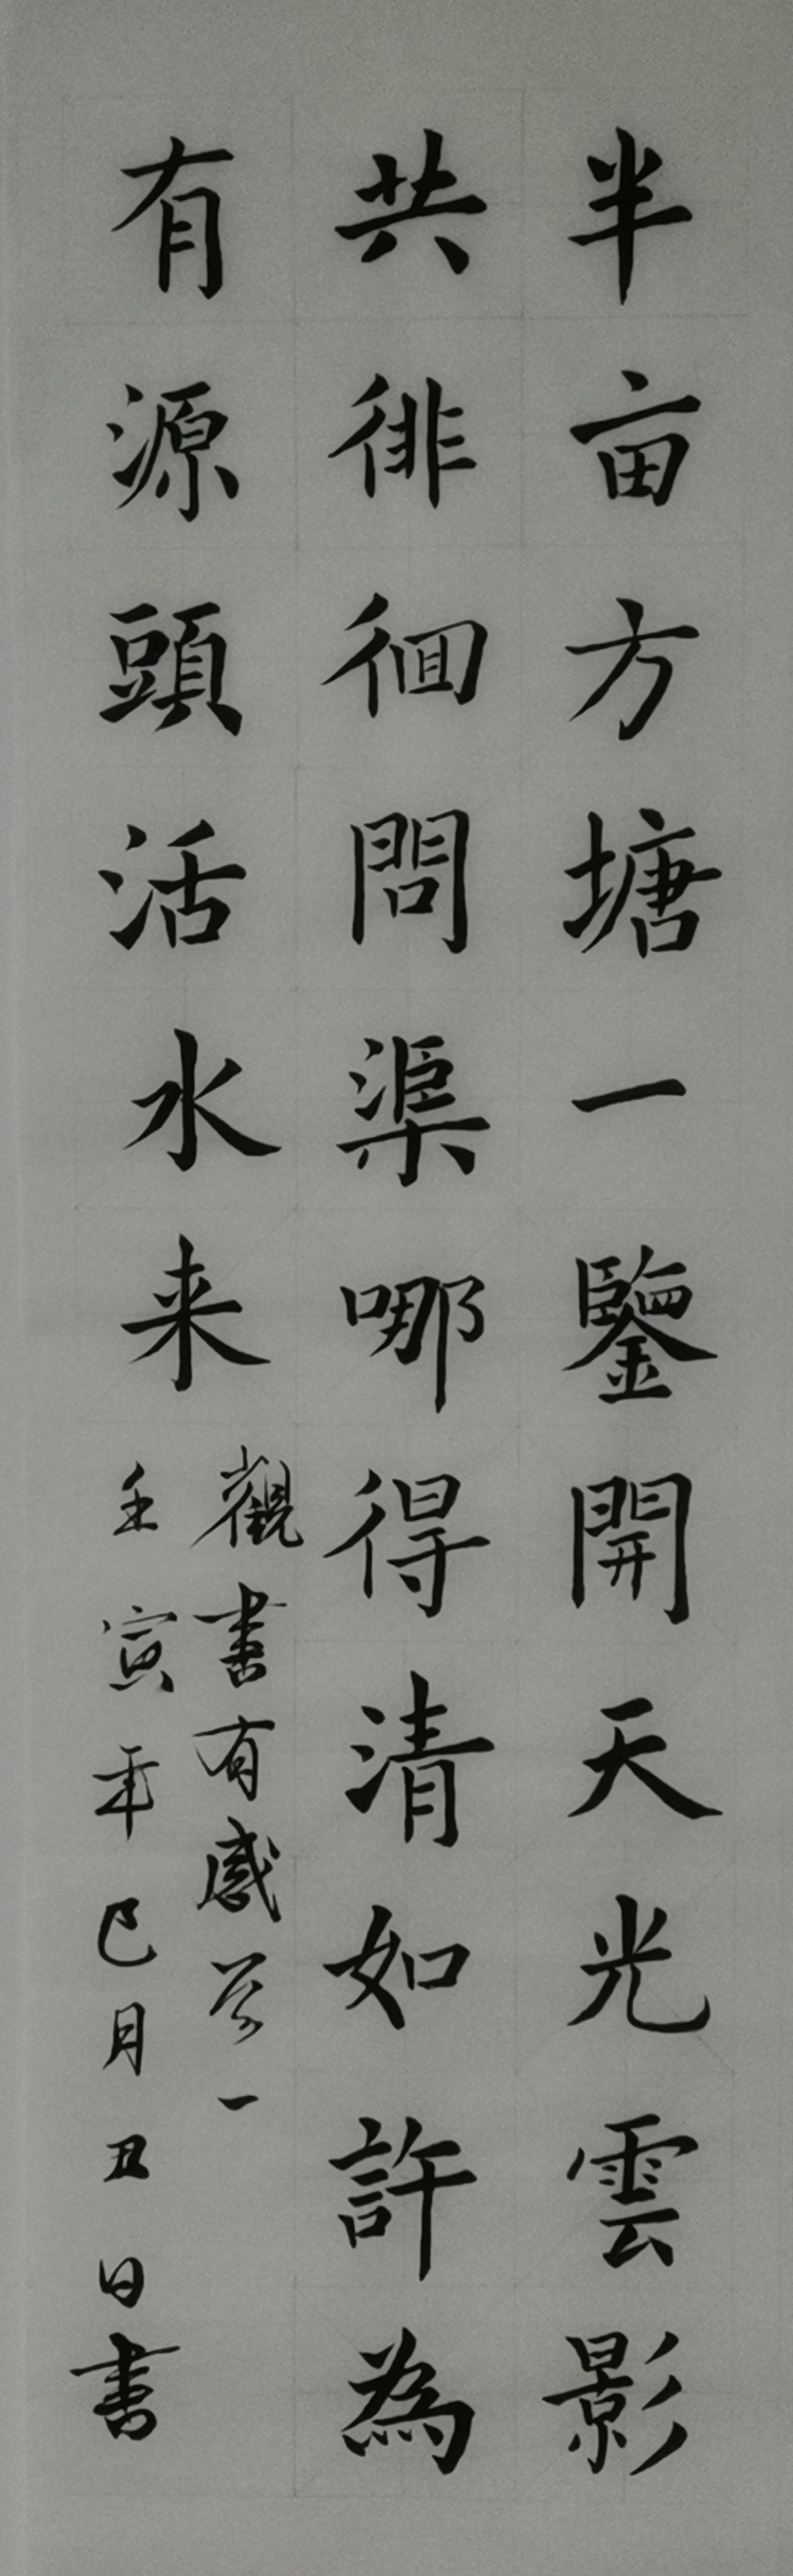 半亩方塘一鑒開天光雲影
共徘徊問渠哪得清如許為
有源頭活水来
觀書有感其一
壬寅年巳月丑日書